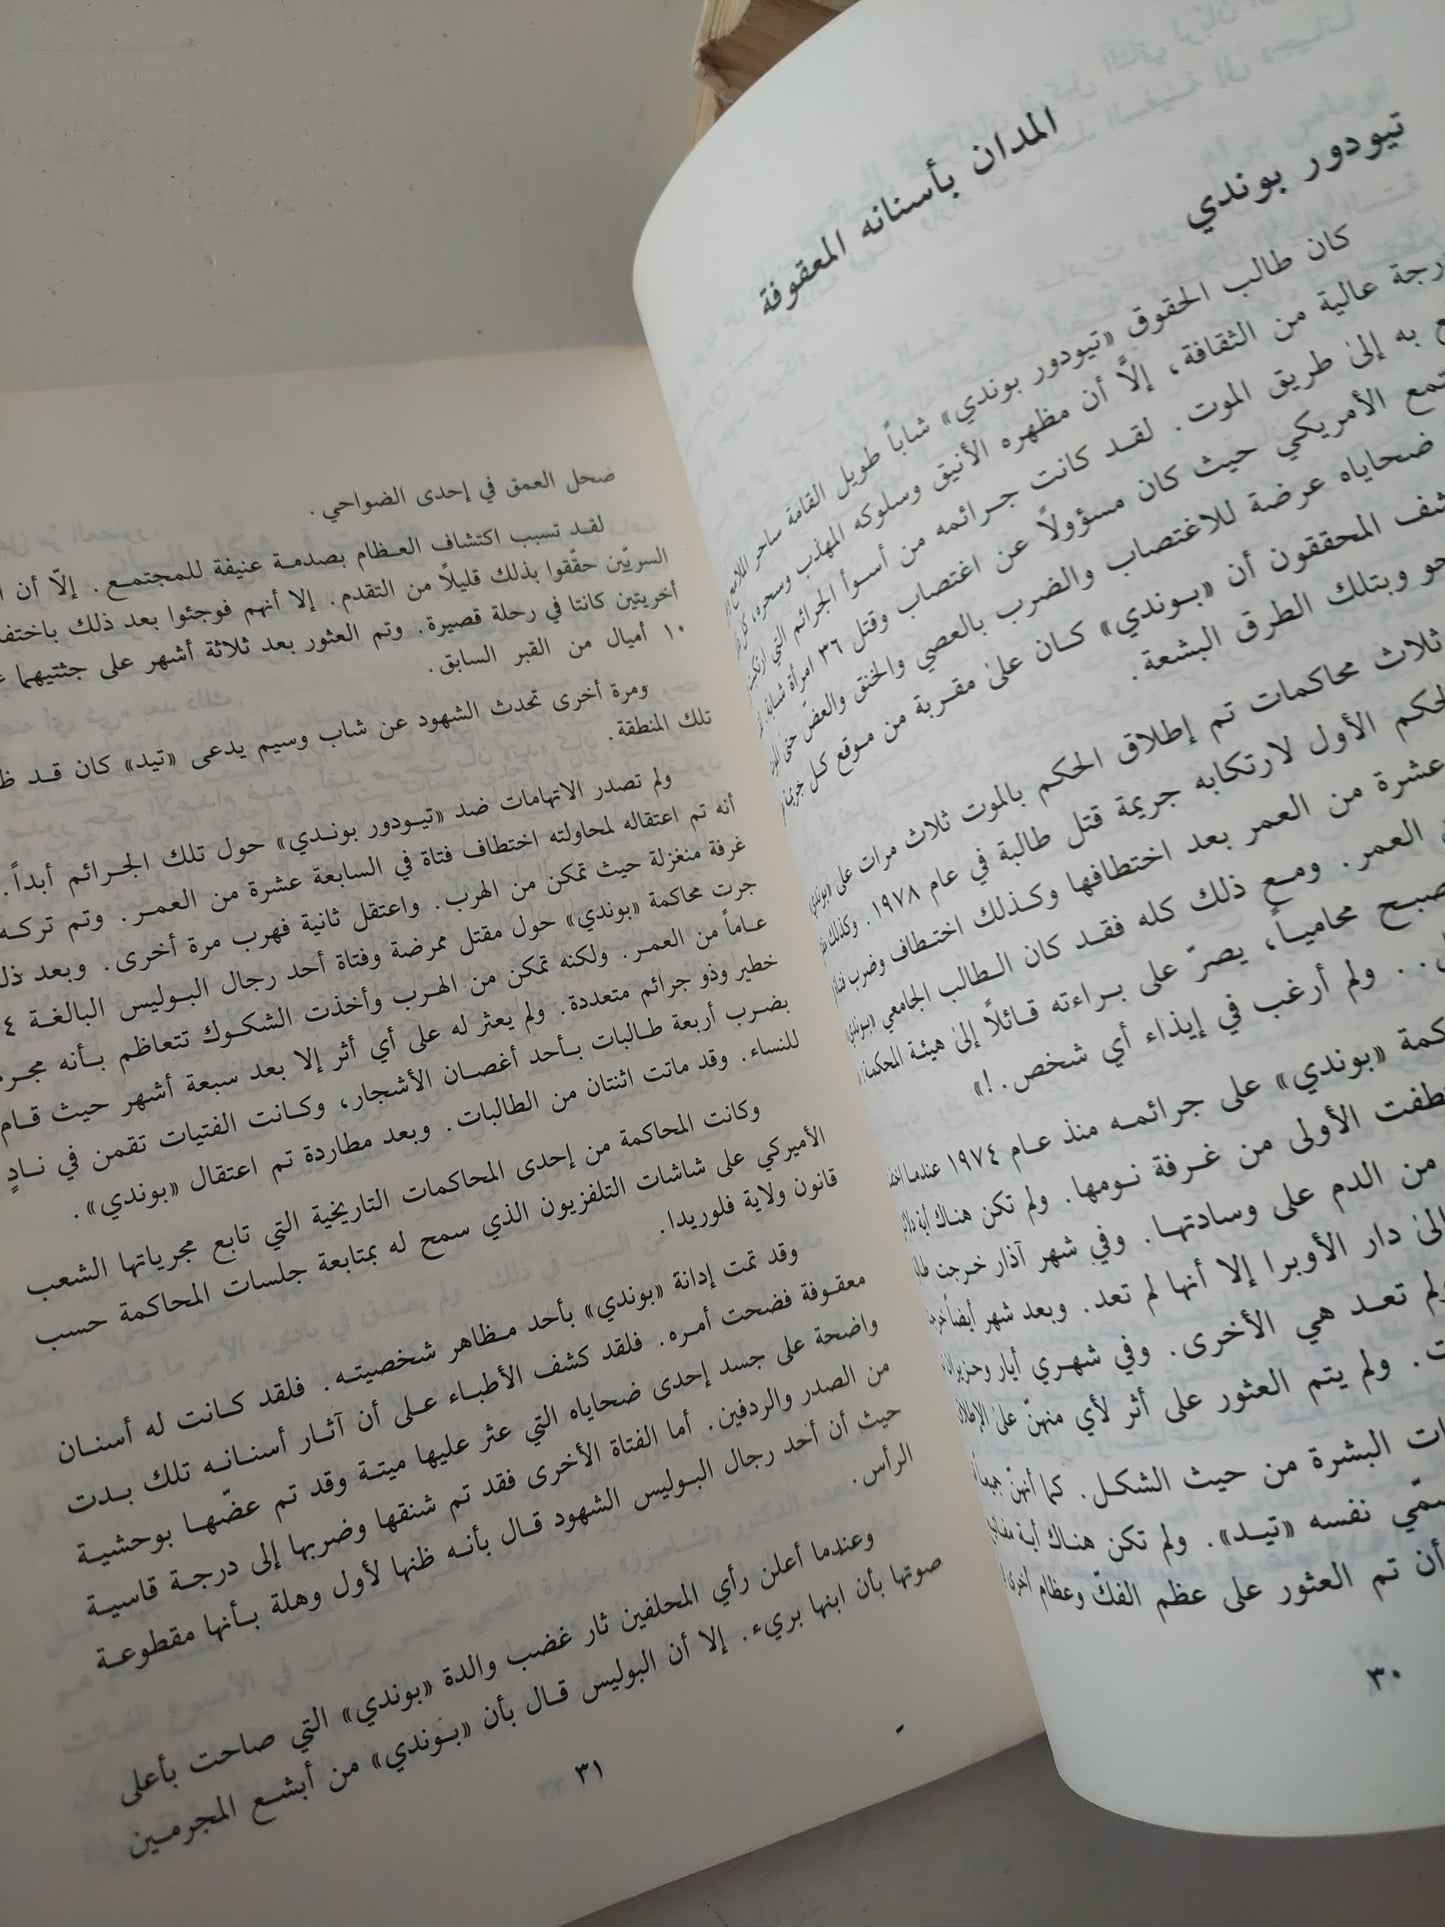 تيودور بوندي
المدان بأسنانه المعقوفة
كان طالب الحقوق «تيودور بوندي» شاباً طويل القامة ساحر الملامح
درجة عالية من الثقافة، إلَّا أن مظهره الأنيق وسلوكه المهذب وسحره،
به إلىٰ طريق الموت. لقـد كانت جـرائمه من أسـوأ الجرائم التي
الأمريكي حيث كان مسؤولاً عن اغتصاب وقتل ٣٦ امرأة شابة.
ضحاياه عرضة للاغتصاب والضرب بالعصي والخنق والعضّ حتى
المحققون أن «بـوندي» كـان علىٰ مقـربة من مـوقع كـل جريمة
وبتلك الطرق البشعة.
ثلاث محاكمات تم إطلاق الحكم بالموت ثلاث مرات على «بوندي
الحكم الأول لارتكابه جريمة قتل طالبة في عام ١٩٧٨. وكذلك
عشرة من العمر بعد اختطافها وكـذلك اختـطاف وضرب
العمر. ومـع ذلك كله فقـد كان الـطالب الجامعي «بـوندي
محاميـاً، يصرّ على بـراءته قـائلاً إلىٰ هيئـة المحكمة
. . ولم أرغب في إيذاء أي شخص. !»
«بوندي» على جرائمـه منذ عـام ١٩٧٤ عندمـا
الأولى من غـرفة نـومها. ولم تكن هنـاك أية
من الدم على وسادتهـا. وفي شهر آذار خـرجت
دار الأوبرا إلا أنها لم تعد. وبعد شهر أيضاً
تعـد هي الأخرى. وفي شهـري أيار وحـزيران
ولم يتم العثور على أثر لأي منهنّ علىٰ الإطلاق
البشرة من حيث الشكـل. كما أنهنّ جميعاً
نفسه «تيـد». ولم تكن هنـاك أية
أن تم العثور على عظم الفكّ وعظام أخرى
٣٠
ضحل العمق في إحدى الضواحي.
لقـد تسبب اكتشاف العـظام بصدمـة عنيفة للمجتمـع. إلاّ أن
السريّين حقّقوا بذلك قليلاً من التقدم. إلا أنهم فوجئوا بعد ذلك
أخريتين كانتا في رحلة قصيرة. وتم العثور بعد ثلاثة أشهر على جثتيهما
١٠ أميال من القبر السابق.
ومرة أخرى تحدث الشهود عن شاب وسيم يدعى «تيد» كان قـد
تلك المنطقة.
ولم تصدر الاتهامات ضد «تيـودور بونـدي» حول تلك الجـرائم أبداً.
أنه تم اعتقاله لمحاولته اختطاف فتاة في السابعة عشرة من العمـر. وتم تركـه
غرفة منغزلة حيث تمكن من الهرب. واعتقل ثانية فهرب مرة أخرى. وبعد
جرت محاكمة «بوندي» حول مقتل ممرضة وفتاة أحد رجال البـوليس البالغـة
عـاماً من العمـر. ولكنه تمكن من الهـرب وأخذت الشكـوك تتعاظم بـأنه
خطير وذو جرائم متعددة. ولم يعثر له على أي أثر إلا بعد سبعة أشهر حيث قـام
بضـرب أربعة طـالبات بـأحد أغصـان الأشجار، وكـانت الفتيات تقمن في نـادٍ
للنساء. وقد ماتت اثنتان من الطالبات. وبعد مطاردة تم اعتقال «بوندي».
وكانت المحاكمة من إحدى المحاكمات التاريخية التي تابع مجرياتها الشعب
الأميركي على شاشات التلفزيون الذي سمح له بمتابعة جلسات المحاكمة حسب
قانون ولاية فلوريدا.
وقد تمت إدانة «بوندي» بأحد مـظاهر شخصيتـه. فلقد كـانت له أسنـان
معقـوفة فضحت أمـره. فلقد كشف الأطبـاء عـلى أن آثـار أسنـانـه تلك بـدت
واضحة على جسد إحدى ضحاياه التي عثر عليها ميتـة وقد تم عضّهـا بوحشيـة
من الصدر والردفين. أما الفتاة الأخرى فقد تم شنقها وضربها إلى درجـة قاسيـة
حيث أن أحد رجال البـوليس الشهود قـال بأنـه ظنها لأول وهلة بـأنها مقطوعـة
الرأس.
وعندما أعلن رأي المحلفين ثار غضب والدة «بوندي» التي صاحت بأعلى
صوتها بأن ابنها بريء. إلا أن البوليس قـال بأن «بـوندي» من أبشـع المجرمـين
٣١